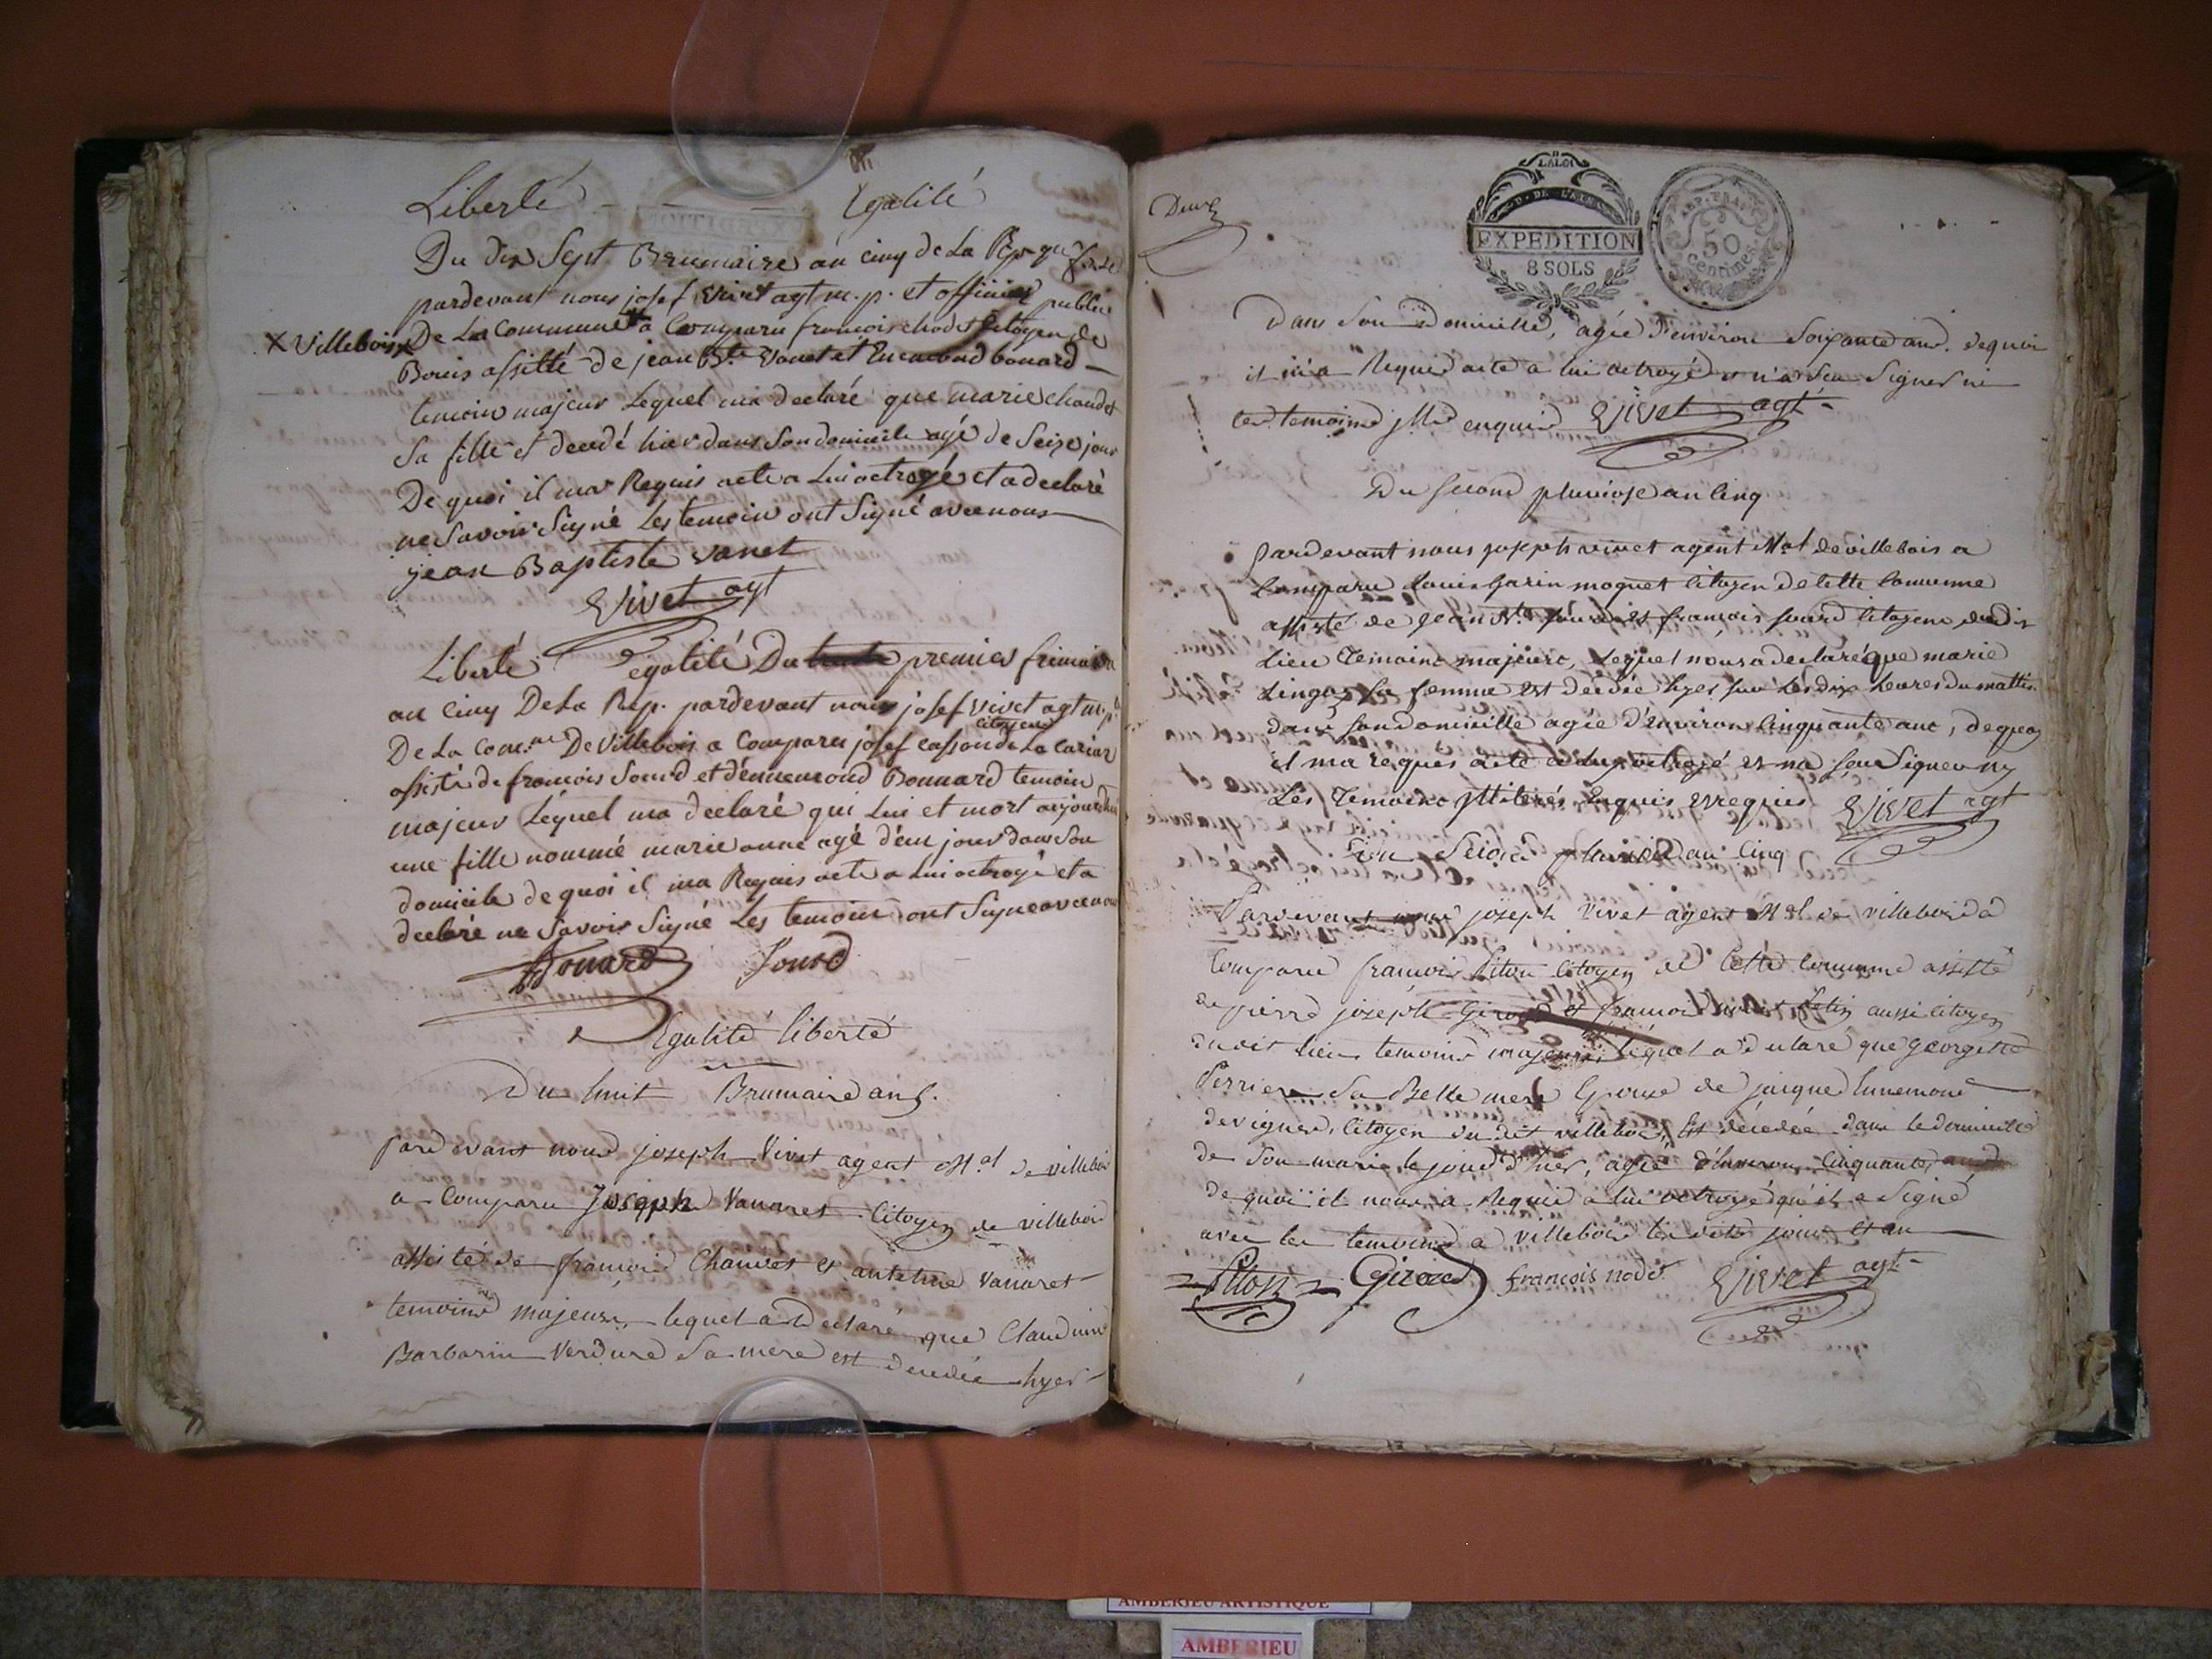 Liberté Egalité
Du dix Sept Brumaire an cinq de La Rep.
pardevant nous josef vivet agt m.p. et officier public
X Villebois De La Commune a Comparu francois chodet Citoyen de
Bouis assisté de jean B.te vanet et Ennemond bonard
temoin majeur Lequel ma declaré que marie chaudet
Sa fille et decedé hier dans Son domicile agé de Seize jour
De quoi il ma Requis acte a Lui octroyé et a declaré
ne Savoir Signé Les temoin ont Signé avec nous
jean Baptiste vanet
Vivet agt
Liberté egalité Du premier frimaire
an Cinq De La Rep. pardevant nous josef vivet agt m.p.
citoyen
De La Com.ne De Villebois a Comparu josef casson de La cariar
assisté de francois Sourd et d'ennemond Bonnard temoin
majeur Léquel ma declaré qui Lui et mort aujourdhui
une fille nommé marie anne agé d'un jour dans Son
domicile de quoi il ma Requis acte a Lui octroyé et a
declaré ne Savoir Signé Les temoins ont Signe avec nous
Bonard Sourd
Egalité liberté
Du huit Brumaire an 5.
pardevant nous joseph Vivet agent M.al de villebois
a Comparu Joseph Vanaret Citoyen de villebois
assisté de francois Chauvet et antelme Vanaret
temoins majeurs, lequel a declaré que Claudine
Barbarin Verdure Sa mere est decedée hyer
Deux
LA LOI
D. DE L'AIN
EXPEDITION
8 SOLS
REP. FRA
50
Centimes
Dans Son Domicille, agée d'environ Soixante ans. de quoi
il m'a Requis acte a lui octroyé et n'a Seu Signer ni
les temoins enquis Vivet agt
Du second pluviose an Cinq
pardevant nous joseph vivet agent M.al de villebois a
Comparu Louis Garin moquet Citoyen de cette Commune
assisté de jean B.te et françois sourd Citoyens dudit
Lieu Temoins majeurs, Lequel nous a declaré que marie
Lingoz sa femme est décédée hyer sur les dix heures du mattin
dans son domicille agée d'environ Cinquante ans, de quoy
il ma requis acte a luy octroyé et na seu Signer ny
Les Temoins enquis et requis Vivet agt
Du Second pluviose an Cinq
Pardevant nous joseph Vivet agent M.al de villebois a
Comparu francois Piton Citoyen de Cette Commune assisté
de pierre joseph Girod et francois aussi Citoyen
dudit lieu temoins majeurs, lequel a declaré que Georgette
Perrier Sa Belle mere Epouse de jacque Ennemond
devigner, Citoyen du dit villebois, Est décédée dans le domicile
de Son marie le jour d'hier, agée d'Environ Cinquante ans
de quoi il nous a Requis a lui octroyé qu'il a Signé
avec les temoins a villebois les dits jour et an
Piton Girod francois nodet Vivet agt
AMBERIEU ARTISTIQUE
AMBERIEU